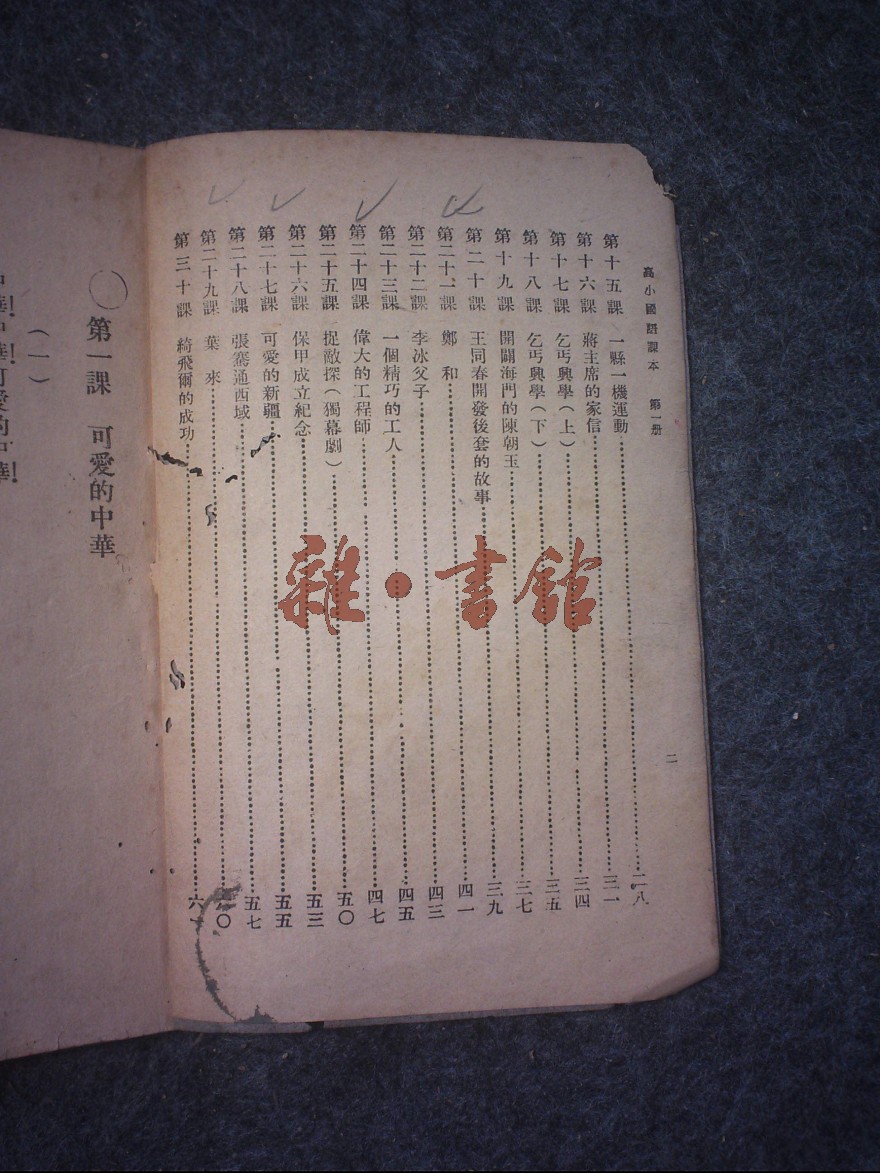 高小國語課本　第一册
二
第十五課　一縣一機運動……二八
第十六課　蔣主席的家信……三一
第十七課　乞丐興學(上)……三四
第十八課　乞丐興學(下)……三五
第十九課　開闢海門的陳朝玉……三七
第二十課　王同春開發後套的故事……三九
第二十一課　鄭　和……四一
第二十二課　李冰父子……四三
第二十三課　一個精巧的工人……四五
第二十四課　偉大的工程師……四七
第二十五課　捉敵探(獨幕劇)……五〇
第二十六課　保甲成立紀念……五三
第二十七課　可愛的新疆……五五
第二十八課　張騫通西域……五七
第二十九課　葉　來……〇
第三十課　綺飛爾的成功……六
第一課　可愛的中華
(一)
雜·書館